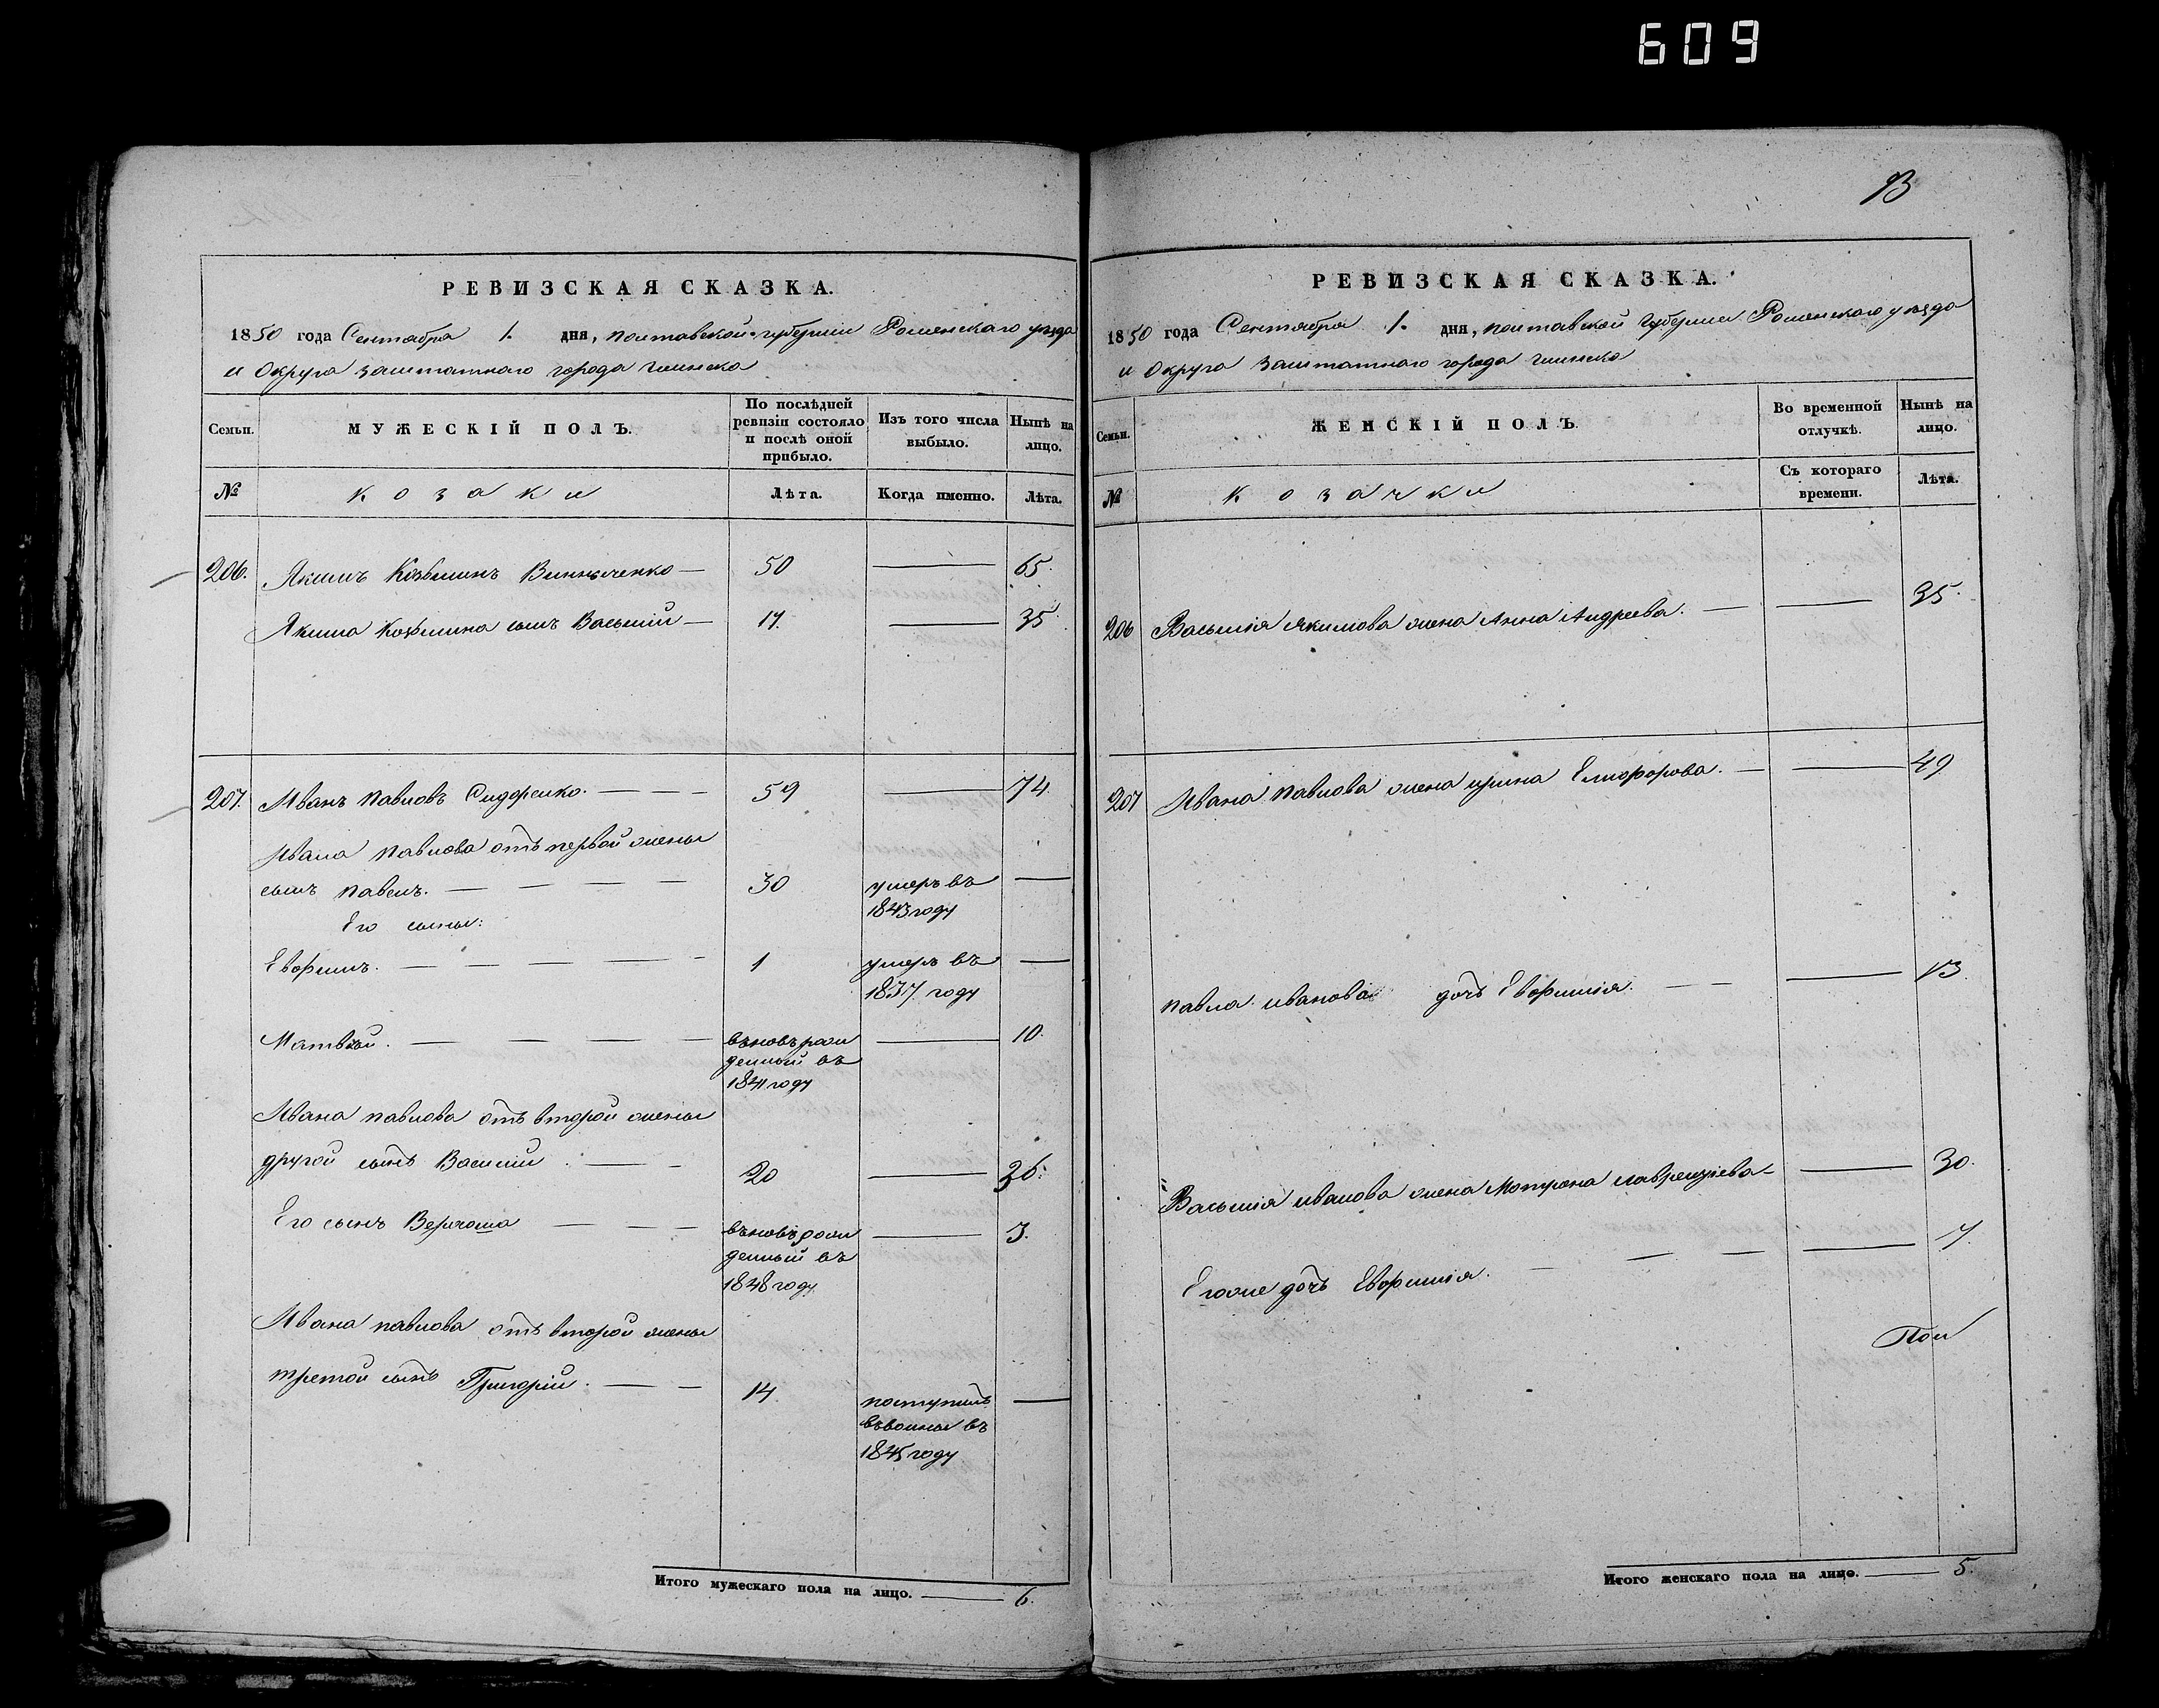 609
РЕВИЗСКАЯ СКАЗКА.
1850 года Сентября 1. дня, полтавской губернии Роменскаго уезда
и Округа заштатнаго города глинска
Семьи.
МУЖЕСКІЙ ПОЛЪ.
По послѣдней ревизіи состояло и послѣ оной прибыло.
Изъ того числа выбыло.
Нынѣ на лицо.
№
козаки
Лѣта.
Когда именно.
Лѣта.
206. Якимъ Козьминъ Винниченко — 50 — 65.
Якима Козьмина сынъ Василій — 17. — 35.
207. Иванъ павловъ Сидоренко. — 59 — 74.
Ивана павлова отъ первой жены
сынъ павелъ. — 30 умеръ въ —
1843 году
Его сыны:
Евфимъ. — 1 умеръ въ —
1837 году
Матвѣй. — вновьрож — 10.
денный въ
1841 году
Ивана павлова отъ второй жены
другой сынъ Василій. — 20 — 36.
Его сынъ — вновьрож — 3.
денный въ
1848 году
Ивана павлова отъ второй жены
третой сынъ Григорій. — 14 поступилъ —
въ
1845 году
Итого мужескаго пола на лицо. — 6.
РЕВИЗСКАЯ СКАЗКА.
1850 года Сентября 1. дня, полтавской губерніи Роменскаго уѣзда
и Округа заштатнаго города глинска
Семьи.
ЖЕНСКІЙ ПОЛЪ.
Во временной отлучкѣ.
Нынѣ на лицо.
№
козачки
Съ котораго времени.
Лѣта.
206 Василія Якимова жена Анна Андреева. — 35.
207 Ивана павлова жена ирина — 49
павла иванова дочь Евфимія. — 13.
Василія иванова жена Мотрона лаврентіева — 30.
Егоже дочь Евфимія. — 7.
Итого женскаго пола на лицо. — 5.